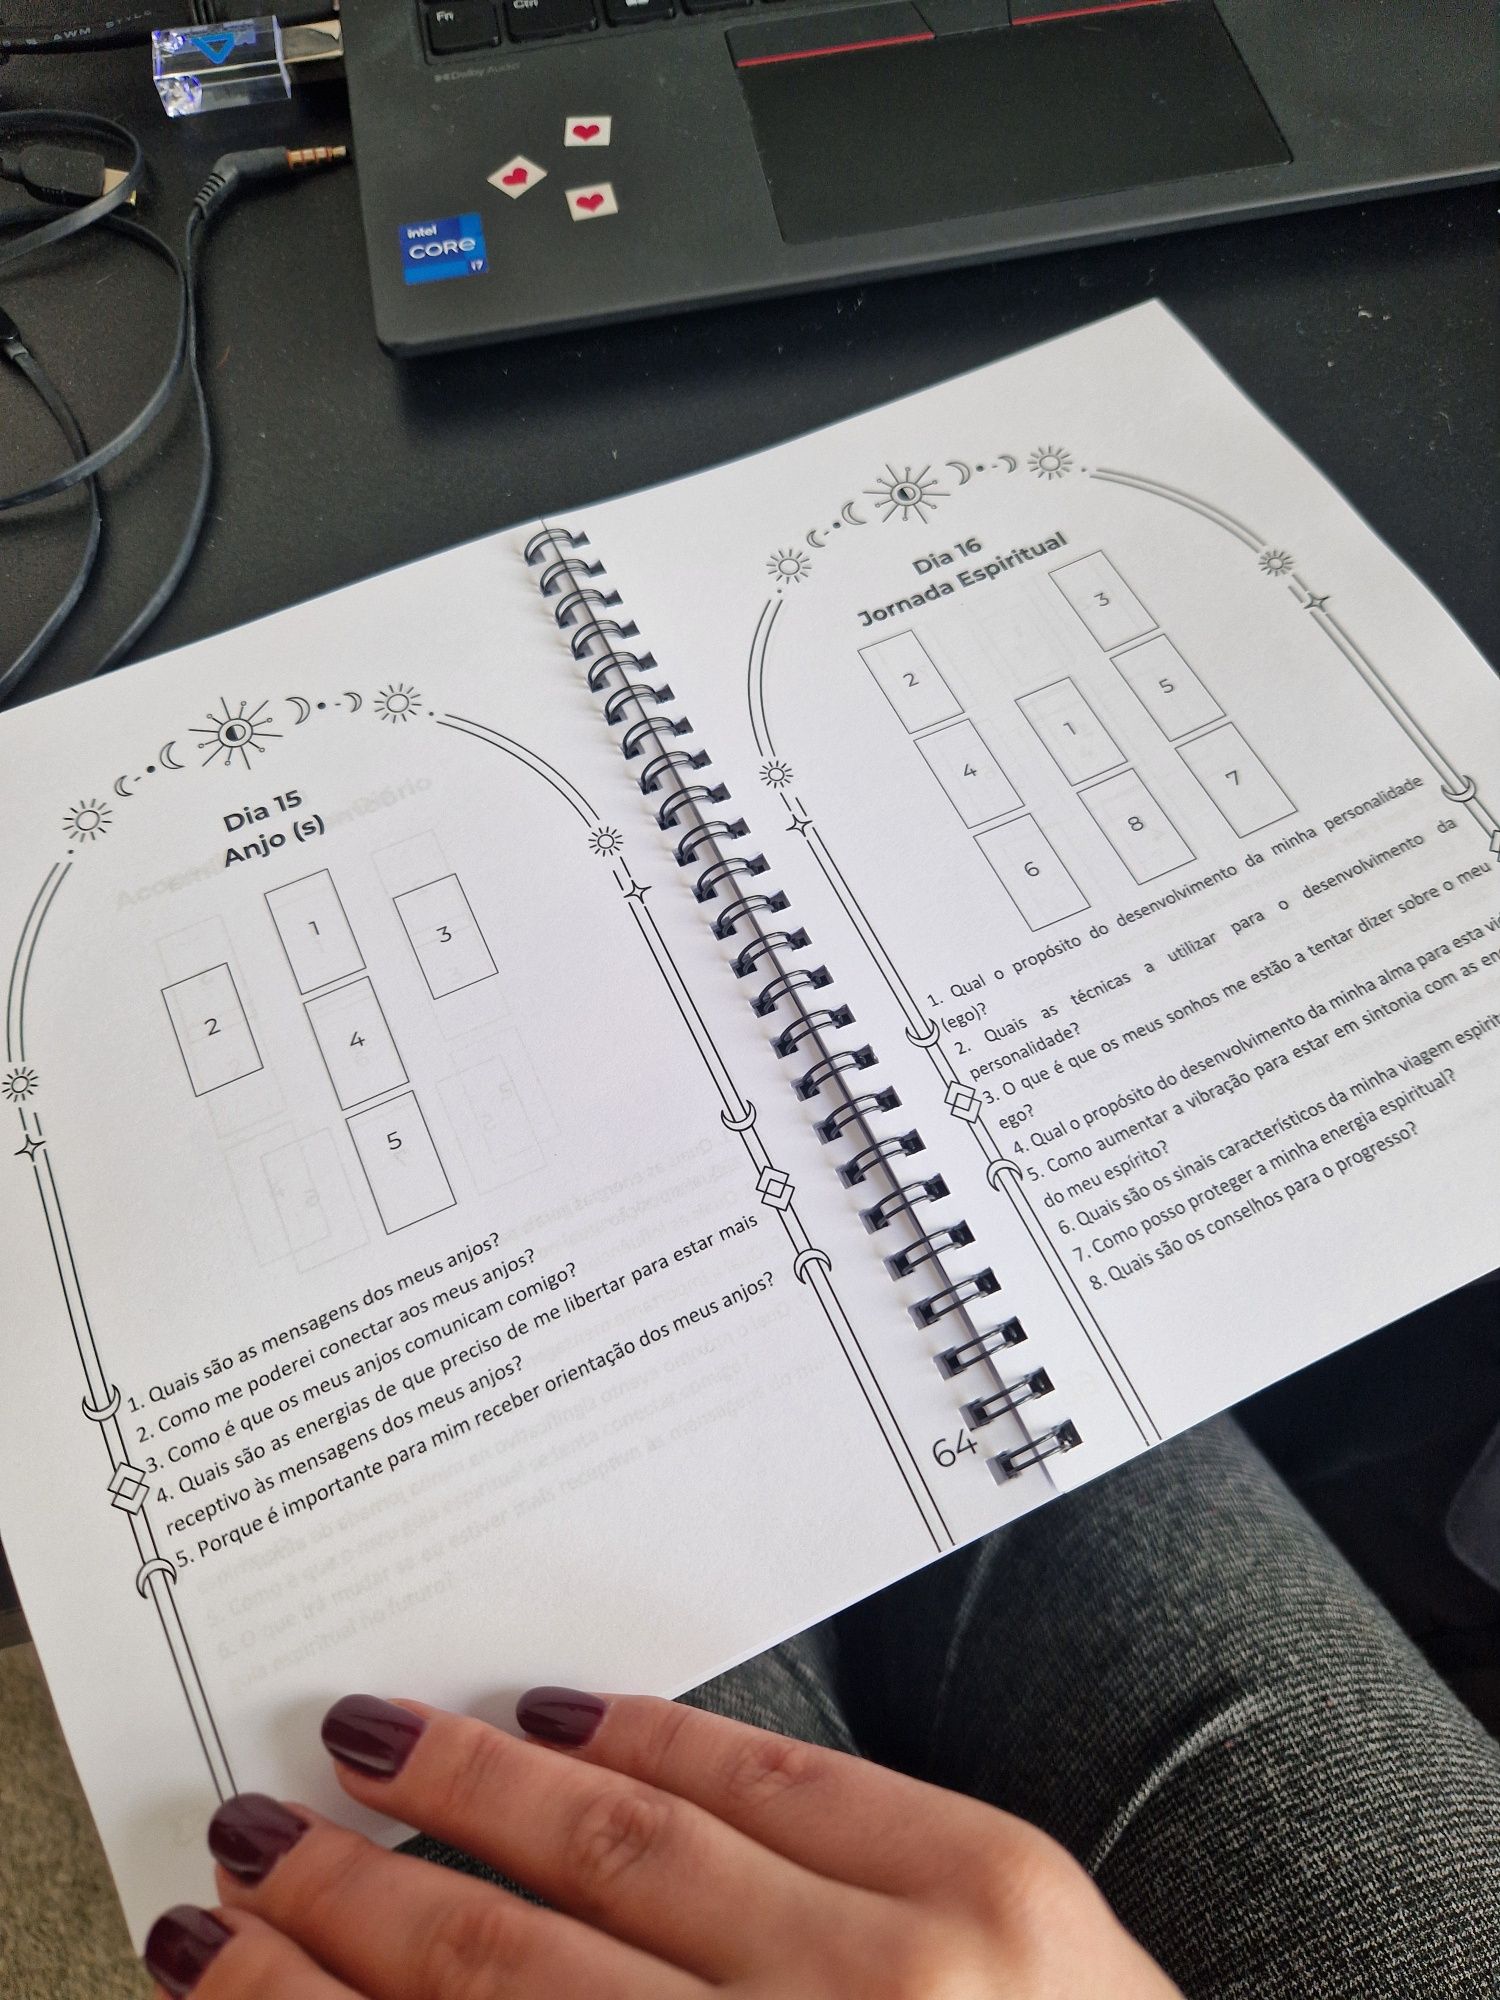 AWM STYLE
Fn
Ctrl
Dolby Audio
intel
CORE
i7
Dia 15
Anjo (s)
1
2
3
4
5
1. Quais são as mensagens dos meus anjos?
2. Como me poderei conectar aos meus anjos?
3. Como é que os meus anjos comunicam comigo?
4. Quais são as energias de que preciso de me libertar para estar mais
receptivo às mensagens dos meus anjos?
5. Porque é importante para mim receber orientação dos meus anjos?
64
Dia 16
Jornada Espiritual
3
2
5
1
4
7
8
6
1. Qual o propósito do desenvolvimento da minha personalidade
(ego)?
2. Quais as técnicas a utilizar para o desenvolvimento da
personalidade?
3. O que é que os meus sonhos me estão a tentar dizer sobre o meu
ego?
4. Qual o propósito do desenvolvimento da minha alma para esta
5. Como aumentar a vibração para estar em sintonia com as
do meu espírito?
6. Quais são os sinais característicos da minha viagem
7. Como posso proteger a minha energia espiritual?
8. Quais são os conselhos para o progresso?